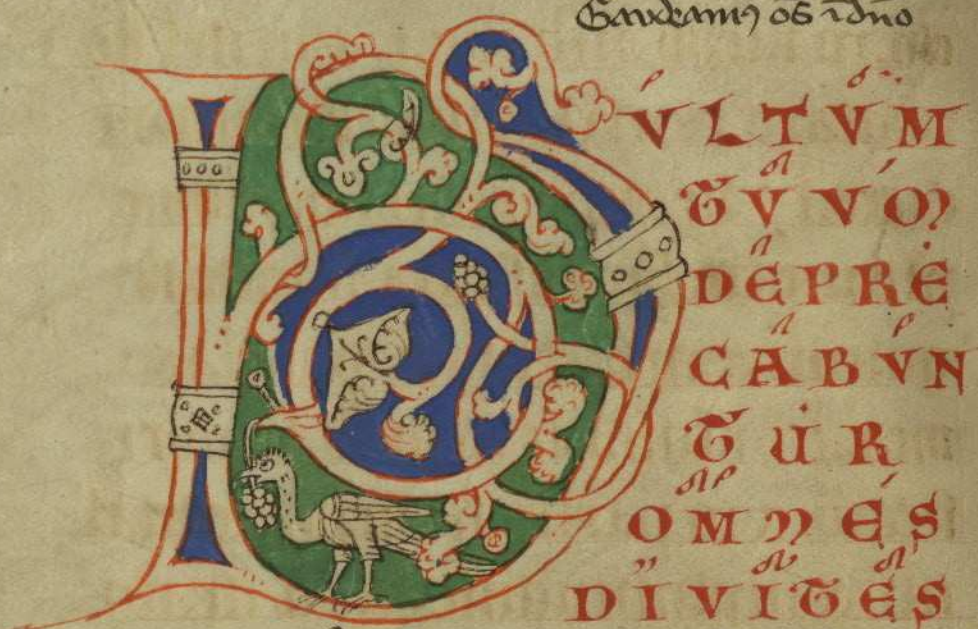 Gaudeam⁹ oēs ı dn̄o
VVLTVM
TVVM
DEPRE
CABVN
TUR
OMNES
DIVITES